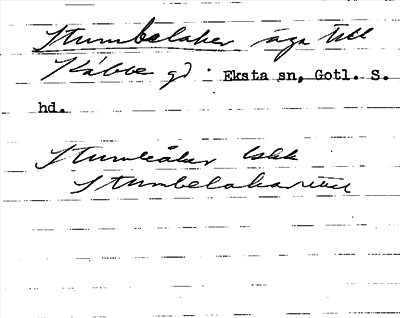 Stumbelaker äga till
Kåbbe gd. Eksta sn, Gotl. S.
hd.
Stumleåker
Stumbelakar